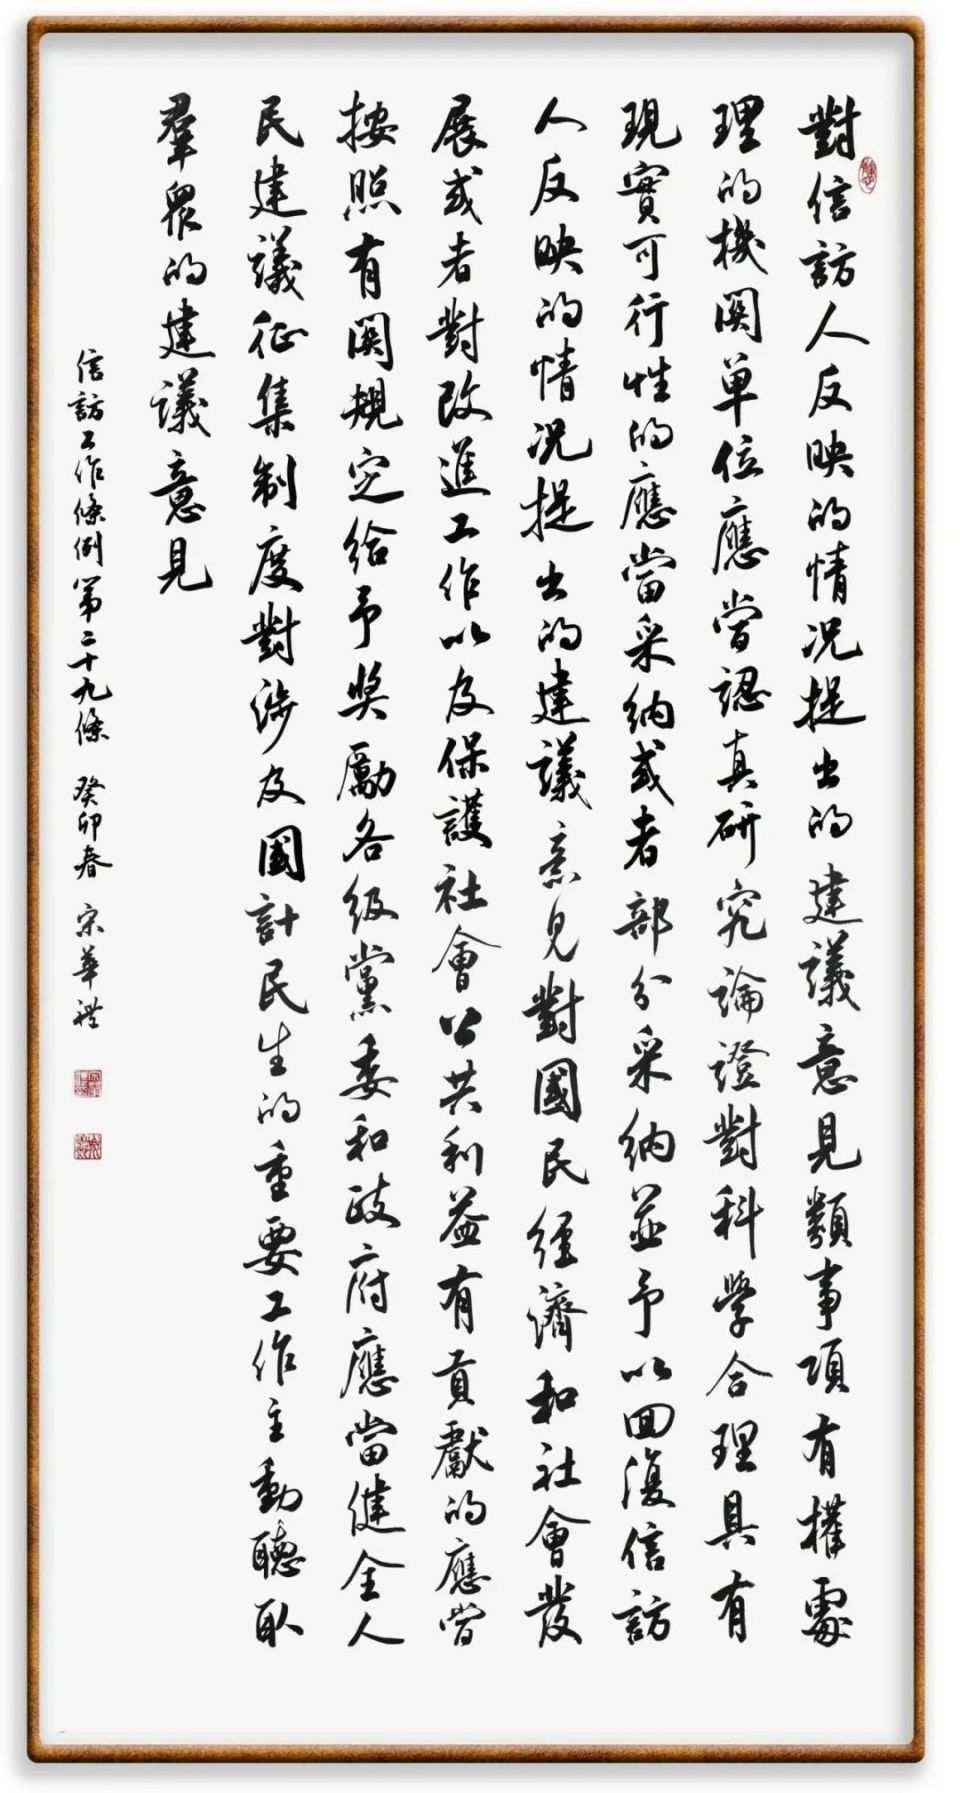 對信訪人反映的情况提出的建議意見類事項有權處
理的機関單位應當認真研究論證對科學合理具有
現實可行性的應當采納或者部分采納並予以回復信訪
人反映的情况提出的建議意見對國民經濟和社會發
展或者對改進工作以及保護社會公共利益有貢獻的應當
按照有関規定給予奖勵各级黨委和政府應當健全人
民建議征集制度對涉及國計民生的重要工作主動聽取
羣眾的建議意見
信訪工作條例第二十九條 癸卯春 宋華禮